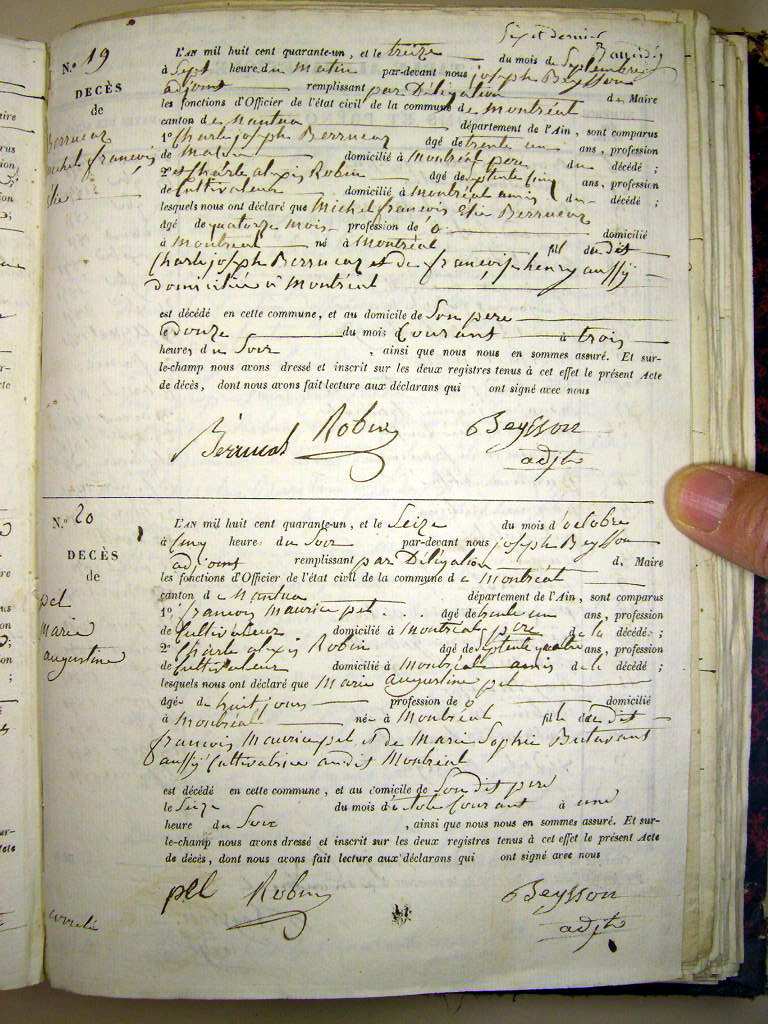 Six et dernier
N.º 19
DECÈS
de
Berrucaz
Michel françois
Elie
L'AN mil huit cent quarante-un, et le treize du mois de Septembre
à Sept heure du Matin par-devant nous joseph Beysson
adjoint remplissant par Délégation du Maire
les fonctions d'Officier de l'état civil de la commune de Montréal
canton de Nantua département de l'Ain, sont comparus
1º Charle joseph Berrucaz âgé de trente un ans, profession
de Maçon domicilié à Montréal pere du décédé ;
2º et Charle alexis Robin âgé de septente cinq ans, profession
de Cultivateur domicilié à Montréal amis du décédé ;
lesquels nous ont déclaré que Michel françois Elie Berrucaz
âgé de quatorze mois profession de 0 domicilié
à Montréal né à Montréal fils du dit
Charle joseph Berrucaz et de françoise henry aussy
domiciliée à Montréal
est décédé en cette commune, et au domicile de Son pere
le douze du mois Courant à trois
heures du Soir , ainsi que nous nous en sommes assuré. Et sur-
le-champ nous avons dressé et inscrit sur les deux registres tenus à cet effet le présent Acte
de décès, dont nous avons fait lecture aux déclarans qui ont signé avec nous
Berrucat Robin Beysson
adjt
N.º 20
DECÈS
de
pel
Marie
augustine
L'AN mil huit cent quarante-un, et le Seize du mois d'octobre
à Cinq heure du Soir par-devant nous joseph Beysson
adjoint remplissant par Délégation du Maire
les fonctions d'Officier de l'état civil de la commune de Montréal
canton de Nantua département de l'Ain, sont comparus
1º francois Maurice pel âgé de trente un ans, profession
de Cultivateur domicilié à Montréal pere de la décédé ;
2º Charle alexis Robin âgé de septente quatre ans, profession
de Cultivateur domicilié à Montréal amis de la décédé ;
lesquels nous ont déclaré que Marie augustine pel
âgé de huit jours profession de 0 domicilié
à Montréal née à Montréal fille du dit
francois Maurice pel et de Marie Sophie Butavant
aussy Cultivatrice audit Montréal
est décédé en cette commune, et au domicile de Son dit pere
le Seize du mois d'octobre Courant à une
heure du Soir , ainsi que nous nous en sommes assuré. Et sur-
le-champ nous avons dressé et inscrit sur les deux registres tenus à cet effet le présent Acte
de décès, dont nous avons fait lecture aux déclarans qui ont signé avec nous
pel Robin Beysson
adjt